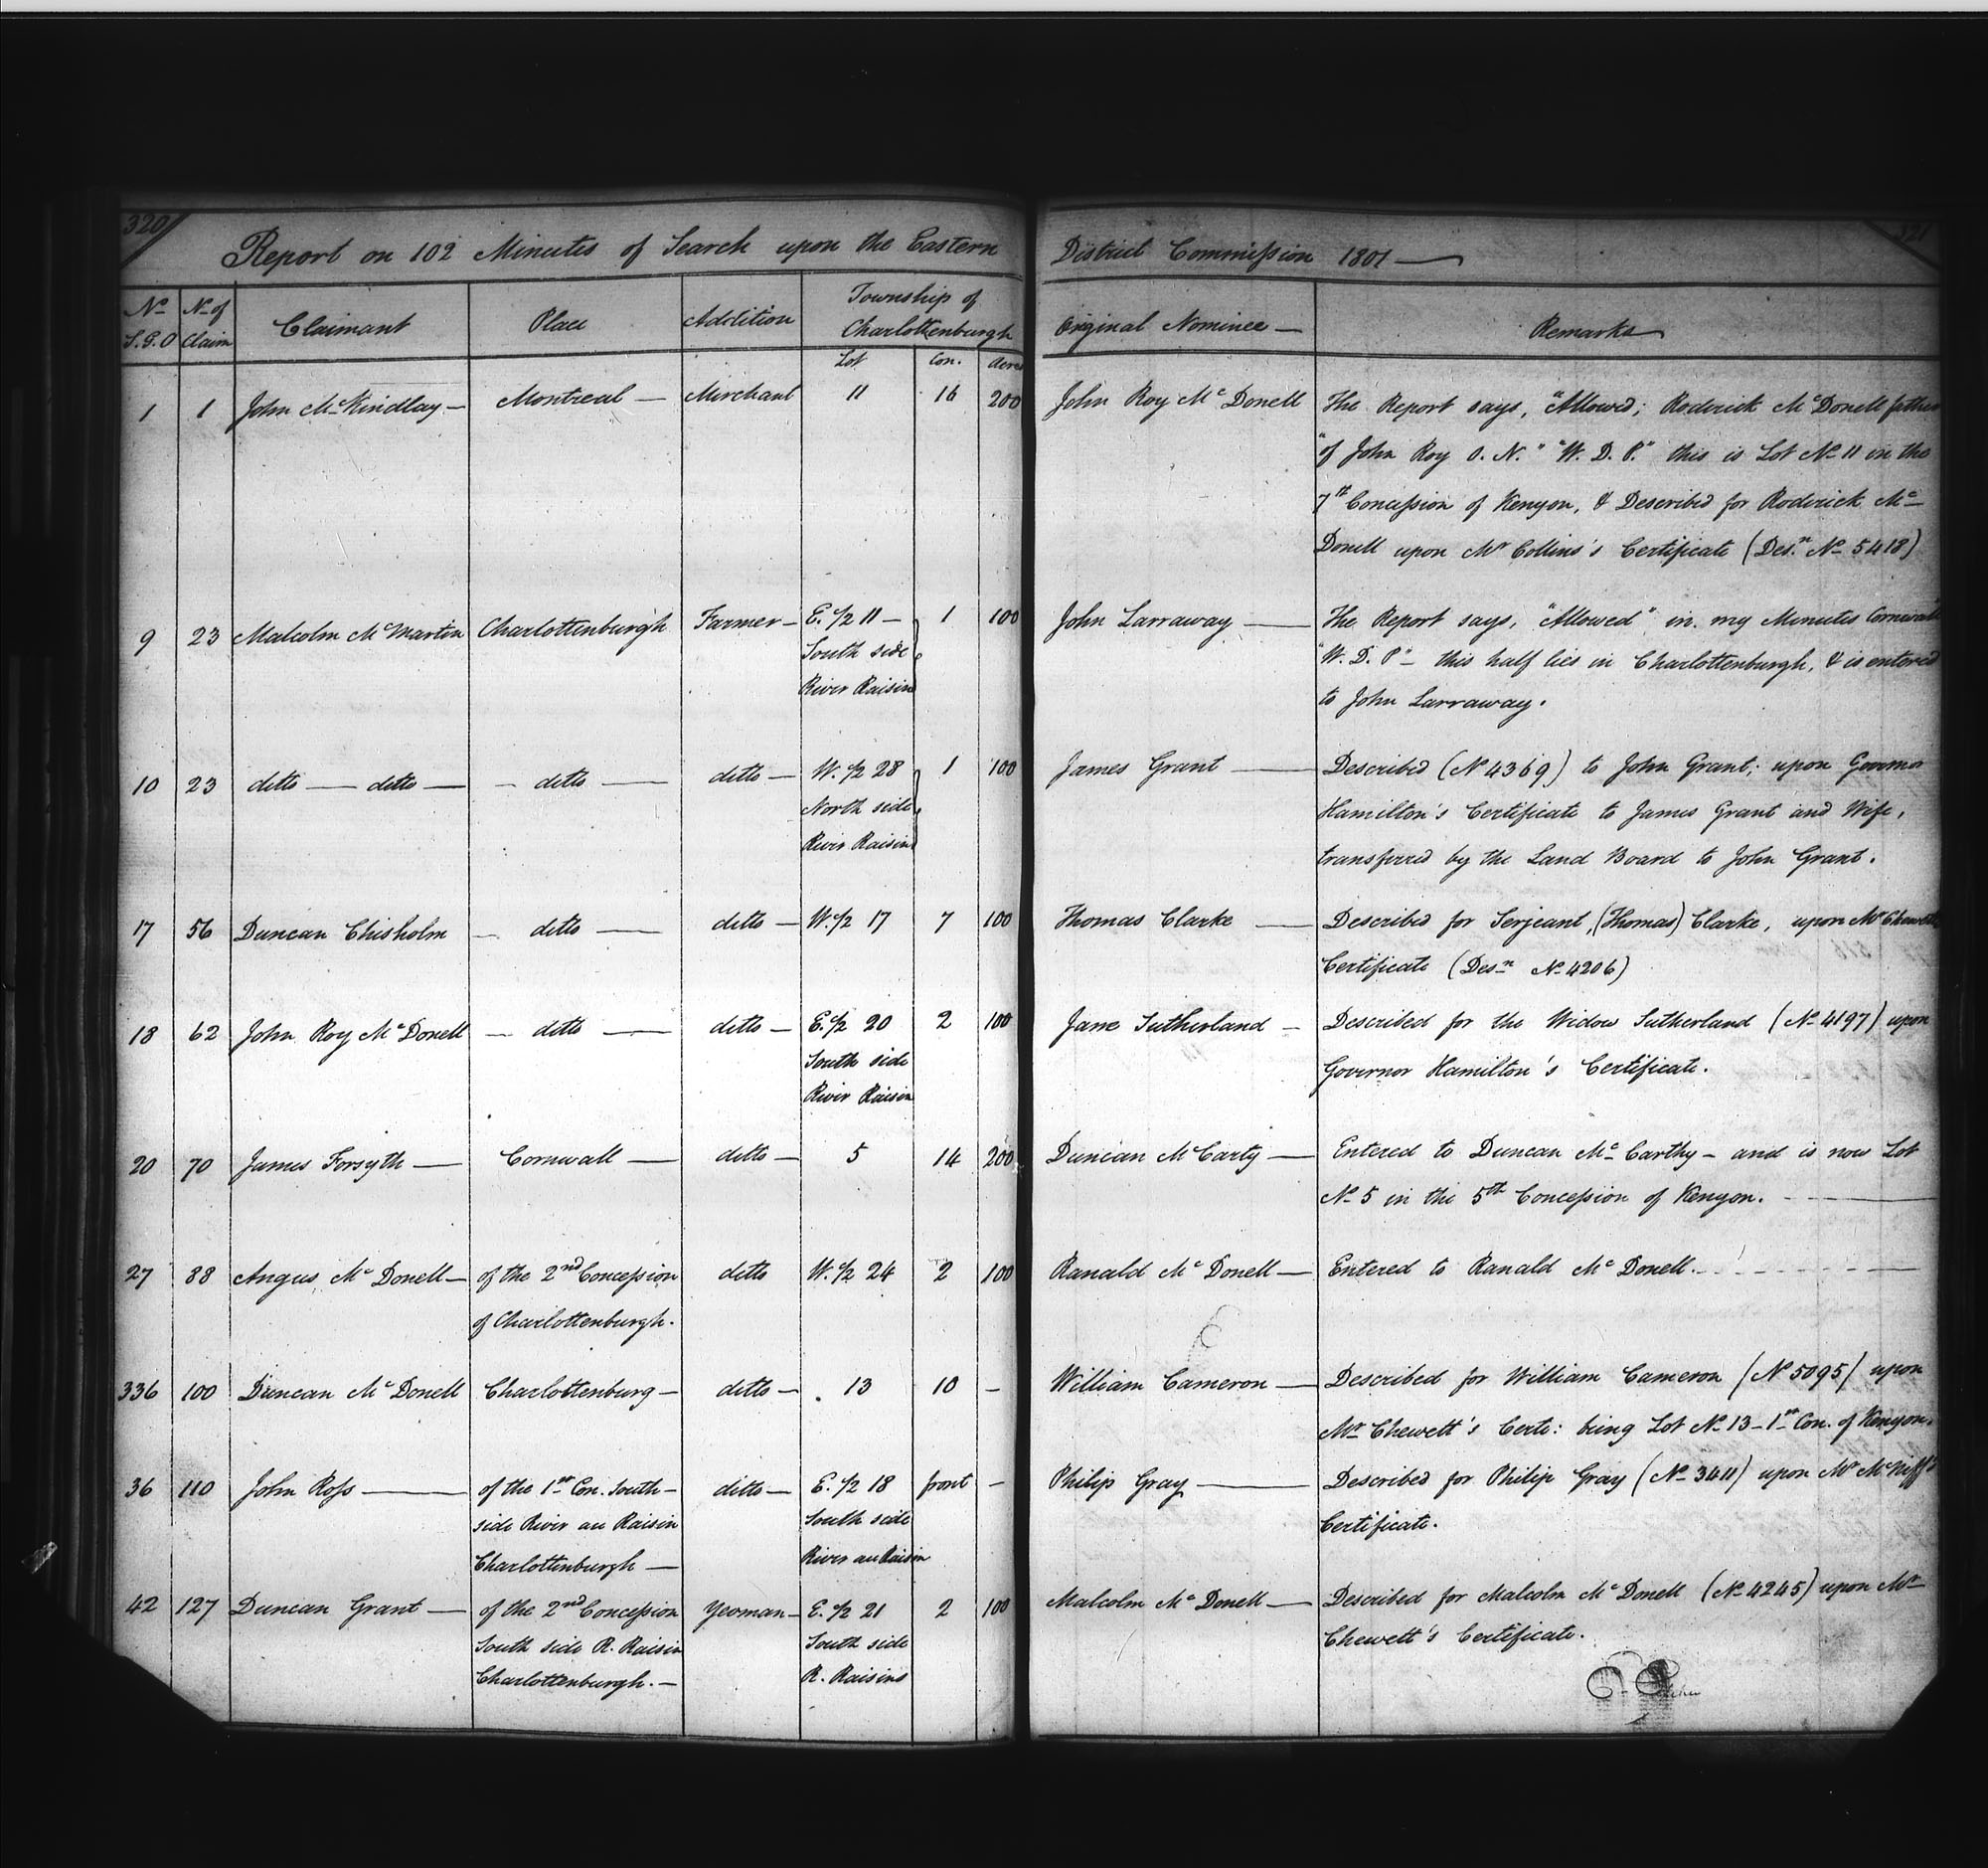 320
Report on 102 Minutes of Search upon the Eastern District Commission 1801
No S.G.O | No of Claim | Claimant | Place | Addition | Township of Charlottenburgh | Original Nominee | Remarks
Lot | Con. | Acres
1 | 1 | John McKindlay | Montreal | Merchant | 11 | 16 | 200 | John Roy McDonell | The Report says, "Allowed; Roderick McDonell father
"of John Roy O. N." "W. D. P." this is Lot No 11 in the
7th Concession of Kenyon, & Described for Roderick Mc
Donell upon Mr Collins's Certificate (Desn No 5418)
9 | 23 | Malcolm McMartin | Charlottenburgh | Farmer | E. 1/2 11 | 1 | 100 | John Larraway | The Report says, "Allowed" in my Minutes Cornwall
South side | "W. D. P" this half lies in Charlottenburgh, & is entered
River Raisin | to John Larraway.
10 | 23 | ditto ditto | ditto | ditto | W. 1/2 28 | 1 | 100 | James Grant | Described (No 4369) to John Grant; upon Governor
North side | Hamilton's Certificate to James Grant and Wife,
River Raisin | transferred by the Land Board to John Grant.
17 | 56 | Duncan Chisholm | ditto | ditto | W. 1/2 17 | 7 | 100 | Thomas Clarke | Described for Serjeant, (Thomas) Clarke, upon Mr Chewett's
Certificate (Desn No 4206)
18 | 62 | John Roy McDonell | ditto | ditto | E. 1/2 20 | 2 | 100 | Jane Sutherland | Described for the Widow Sutherland (No 4197) upon
South side | Governor Hamilton's Certificate.
River Raisin
20 | 70 | James Forsyth | Cornwall | ditto | 5 | 14 | 200 | Duncan McCarty | Entered to Duncan McCarthy - and is now Lot
No 5 in the 5th Concession of Kenyon.
27 | 88 | Angus McDonell | of the 2nd Concession | ditto | W. 1/2 24 | 2 | 100 | Ranald McDonell | Entered to Ranald McDonell.
of Charlottenburgh.
336 | 100 | Duncan McDonell | Charlottenburg | ditto | 13 | 10 | - | William Cameron | Described for William Cameron (No 5095) upon
Mr Chewett's Certe: being Lot No 13 - 1st Con. of Kenyon.
36 | 110 | John Ross | of the 1st Con. South | ditto | E. 1/2 18 | front | - | Philip Gray | Described for Philip Gray (No 3411) upon Mr McNiff's
side River au Raisin | South side | Certificate.
Charlottenburgh | River au Raisin
42 | 127 | Duncan Grant | of the 2nd Concession | Yeoman | E. 1/2 21 | 2 | 100 | Malcolm McDonell | Described for Malcolm McDonell (No 4245) upon Mr
South side R. Raisin | South side | Chewett's Certificate.
Charlottenburgh. | R. Raisins